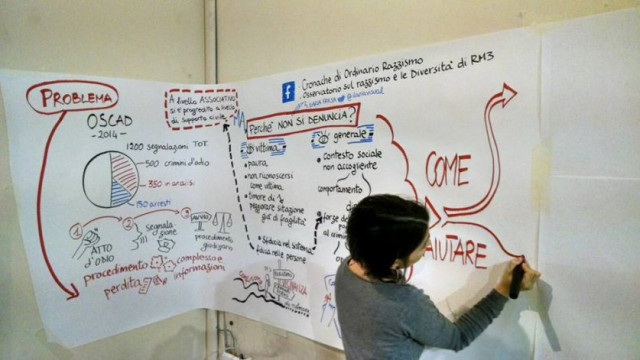 PROBLEMA
OSCAD
-2014-
1200 segnalazioni TOT.
500 crimini d'odio
130 arresti
1
2
3
ATTO
D'ODIO
SEGNALA-
ZIONE
AVVIO
procedimento
giudiziario
procedimento complesso e
perdita informazioni
A livello ASSOCIATIVO
si è progrediti a livello
di supporto
f
Cronache di Ordinario Razzismo
Osservatorio sul razzismo e le Diversità di RM3
Perché NON SI DENUNCIA?
vittima
• paura
• non riconoscersi
come vittima
• timore di
peggiorare situazione
già di fragilità
• sfiducia nel sistema
e nelle persone
in generale
• contesto sociale
non accogliente
comportamento
• forze de
COME
AIUTARE